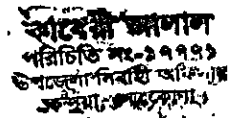 কাবেরী জালাল
পরিচিতি নং-১৭৭৪১
উপজেলা নির্বাহী অফিসার
কেন্দুয়া, নেত্রকোণা।